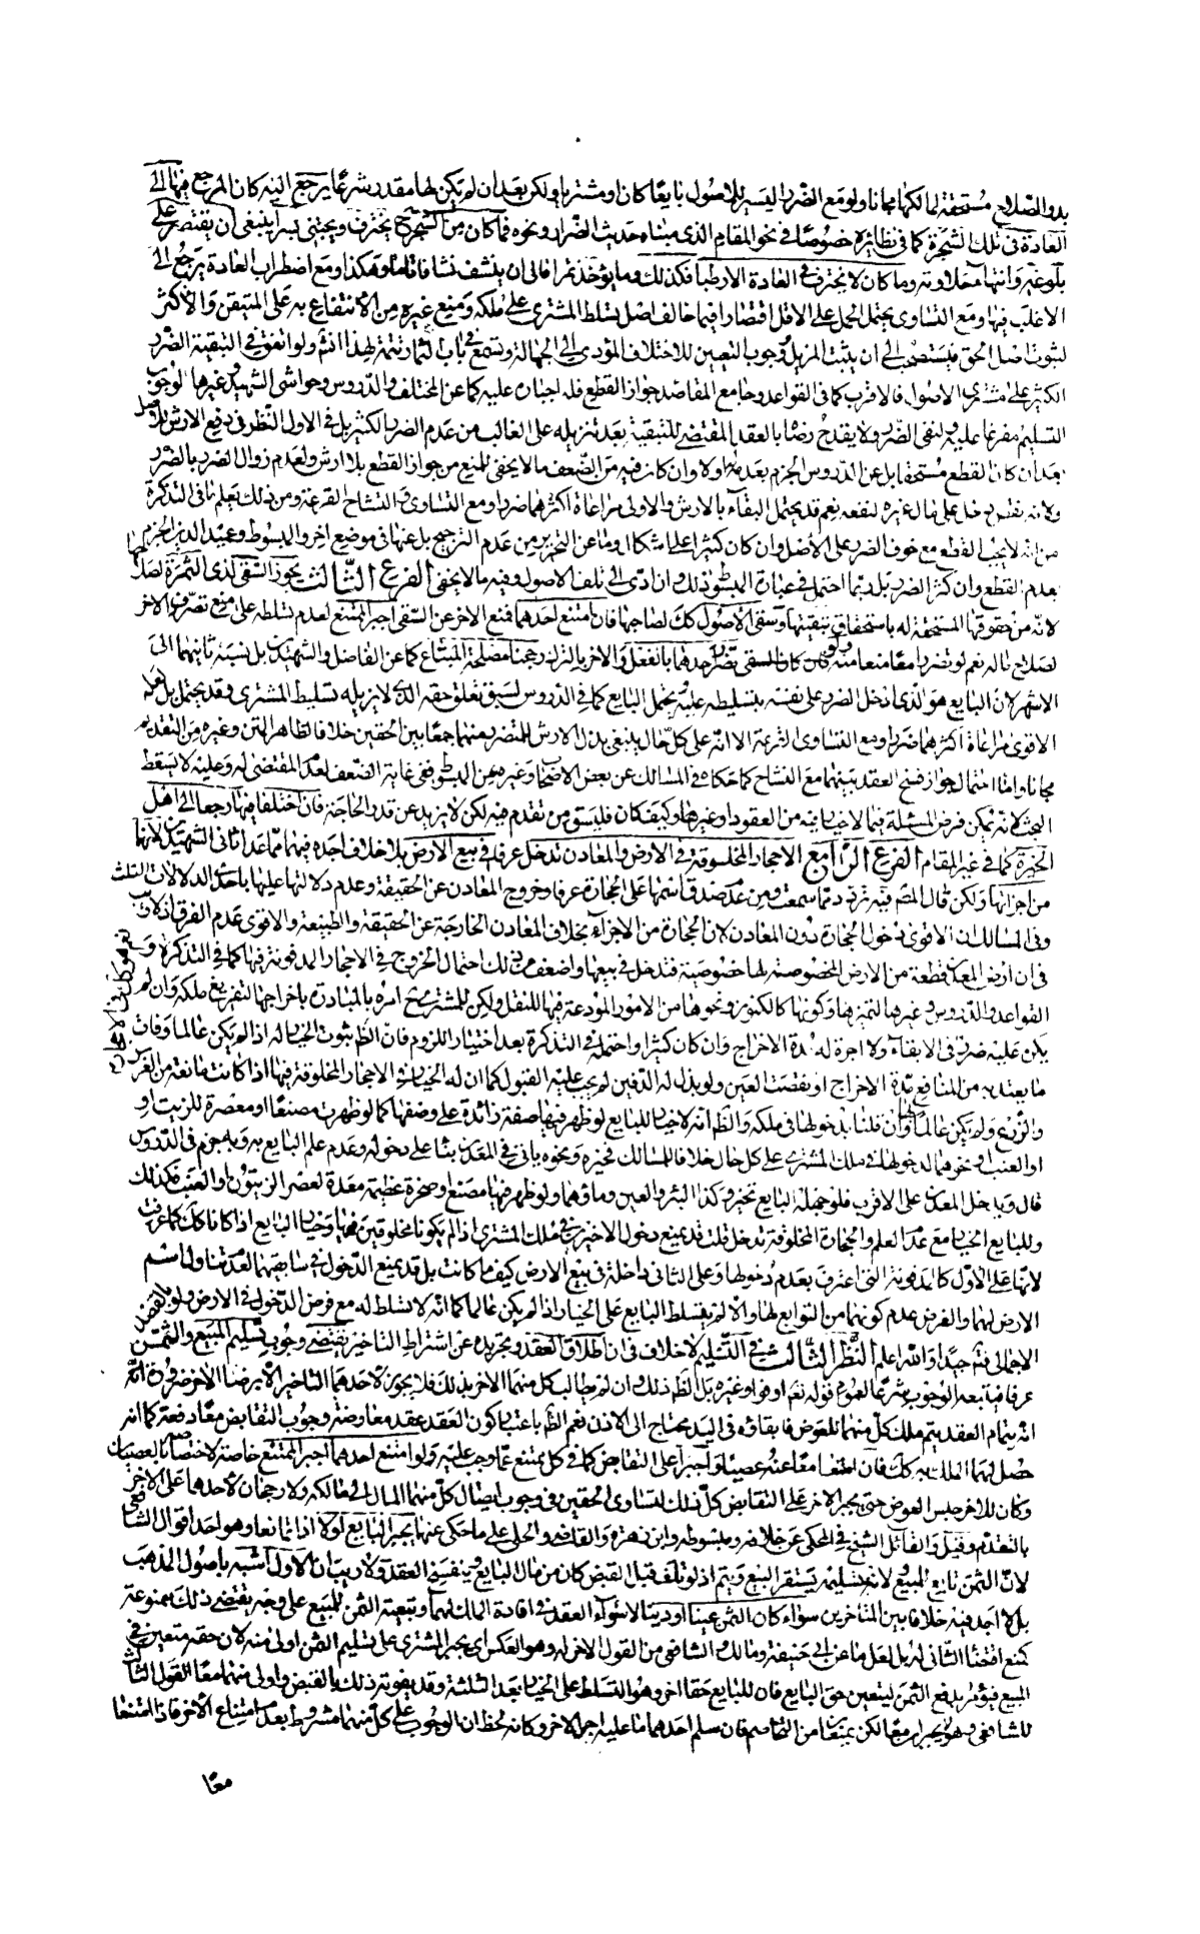 بدو الصلاح مستحقة لمالكها مجانا ولو مع الضرر اليسير للاصول بايعا كان او مشتريا ولكن بعد ان لم يكن لها مقدر شرعا يرجع اليه كان المرجع فيها الى
العادة فى تلك الشجرة كما فى نظائره خصوصا فى نحو المقام الذى مبناه حديث الضرار ونحوه فما كان من الشجر يخترف ويجتنى بسرا ينبغى ان يقتصر على
بلوغه وانتهاء حلاوته وما كان لا يخترف فى العادة الا رطبا فكذلك وما يؤخذ تمرا فالى ان ينشف نشافا تاما وهكذا ومع اضطراب العادة يرجع الى
الاغلب فيها ومع التساوى يحتمل الحمل على الاقل اقتصارا فيما خالف اصل تسلط المشترى على ملكه ومنع غيره من الانتفاع به على المتيقن والاكثر
لثبوت اصل الحق فيستصحب الى ان يثبت المزيل ووجوب التعيين للاختلاف المؤدى الى الجهالة وتسمع فى باب الثمار تتمة لهذا انشم ولو اتفق فى التبقية الضرر
الكثير على مشترى الاصول فالاقرب كما فى القواعد وجامع المقاصد جواز القطع فله اجباره عليه كما عن المختلف والدروس وحواشى الشهيد وغيرها لوجوب
التسليم مفرغا عليه ولنفى الضرر ولا يقدح رضا بالعقد المقتضى للتبقية بعد تنزيله على الغالب من عدم الضرر الكثير بل فى الاول النظر فى دفع الارش للاصل
بعد ان كان القطع مستحقا بل عن الدروس الجزم بعدمه اولا وان كان فيه من الضعف ما لا يخفى للمنع من جواز القطع بلا ارش ولعدم زوال الضرر بالضرر
ولانه نقص دخل على مال غيره لنفعه نعم قد يحتمل البقاء بالارش والاولى مراعاة اكثرهما ضررا ومع التساوى والتشاح القرعة ومن ذلك يعلم ما فى التذكرة
من انه لا يجب القطع مع خوف الضرر على الاصل وان كان كثيرا على اشكال وما عن التحرير من عدم الترجيح بل عنها فى موضع اخر والمبسوط وعميد الدين الجزم
بعدم القطع وان كثر الضرر بل ربما احتمل فى عبارة المبسوط ذلك وان ادى الى تلف الاصول وفيه ما لا يخفى الفرع الثالث يجوز السقى لذى الثمرة لصلاحها
لانه من حقوقها المستحقة له باستحقاق تبقيتها وسقى الاصول كك لصاحبها فان امتنع احدهما فمنع الاخر عن السقى اجبر الممتنع لعدم تسلطه على منع تصرف الاخر
لصلاح ماله نعم لو تضررا معا منعا منه ولو كان السقى تضرر احدهما بالفعل والاخر بالترك رجحنا مصلحة المبتاع كما عن الفاضل والشهيدين بل نسبه ثانيهما الى
الاشهر لان البايع هو الذى ادخل الضرر على نفسه بتسليطه عليه ويحتمل البايع كما فى الدروس لسبق تعلق حقه الذى لا يزيله تسليط المشترى وقد يحتمل بل لعله
الاقوى مراعاة اكثرهما ضررا ومع التساوى القرعة الا انه على كل حال ينبغى بذل الارش للمتضرر منهما جمعا بين الحقين خلافا لظاهر المتن وغيره من التقديم
مجانا واما احتمال جواز فسخ العقد بينهما مع التشاح كما حكاه فى المسالك عن بعض الاصحاب وغيره عن المبسوط ففى غاية الضعف لعدم المقتضى له وعليه لا يسقط
البحث لانه يمكن فرض المسئلة فيما لا خيار فيه من العقود او غيرها وكيف كان فليسق من تقدم فيه لكن لا يزيد عن قدر الحاجة فان اختلفا فيها رجعا الى اهل
الخبرة كما فى غير المقام الفرع الرابع الاحجار المخلوقة فى الارض والمعادن تدخل عرفا فى بيع الارض بلا خلاف اجده فيهما مما عدا ثانى الشهيدين لانها
من اجزائها ولكن قال المصنف فيه تردد مما سمعت ومن عدم صدق اسمها على الحجارة عرفا وخروج المعادن عن الحقيقة وعدم دلالتها عليها باحدى الدلالات الثلث
وفى المسالك ان الاقوى دخول الحجارة دون المعادن لان الحجارة من الاجزاء بخلاف المعادن الخارجة عن الحقيقة والطبيعة والاقوى عدم الفرق اذ لا ريب
فى ان ارض المعدن قطعة من الارض المخصوصة لها خصوصية فتدخل فى بيعها واضعف من ذلك احتمال الخروج فى الاحجار المدفونة فيها كما فى التذكرة و
القواعد والدروس وغيرها لتميزها وكونها كالكنوز ونحوها من الامور المودعة فيها للنقل ولكن للمشترى امره بالمبادرة باخراجها لتفريغ ملكه وان لم
يكن عليه ضرر فى الابقاء ولا اجرة له مدة الاخراج وان كان كثيرا واحتمله فى التذكرة بعد اختيار اللزوم فان الظ ثبوت الخيار له اذا لم يكن عالما وفات
ما يعتد به من المنافع مدة الاخراج او نقصت العين ولو بذل له الدفين لم يجب عليه القبول كما ان له الخيار فى الاحجار المخلوقة فيها اذا كانت مانعة من الغرس
والزرع ولم يكن عالما وان قلنا بدخولها فى ملكه والظ انه لا خيار للبايع لو ظهر فيها صفة زائدة على وصفها كما لو ظهرت مصنعا او معصرة للزيت او
او العنب او نحوهما لدخولها فى ملك المشترى على كل حال خلافا للمسالك فخيره ونحوه ياتى فى المعدن بناء على دخوله وعدم علم البايع به وبه جزم فى الدروس
قال ويدخل المعدن على الاقرب فلو جهله البايع تخير وكذا البئر والعين وماؤهما ولو ظهر فيها مصنع او صخرة عظيمة معدة لعصر الزيتون او العنب فكذلك
وللبايع الخيار مع عدم العلم والحجارة المخلوقة تدخل قلت قد يمنع دخول الاخير فى ملك المشترى اذا لم يكونا مخلوقين فيها وخيار البايع اذا كانا كك كما عرفت
لانها على الاول كالمدفونة التى اعترف بعدم دخولها وعلى الثانى داخلة فى بيع الارض كيف ما كانت بل قد يمنع الدخول فى سابقيهما لعدم تناول اسم
الارض لهما والفرض عدم كونهما من التوابع لها والا لم يتسلط البايع على الخيار اذا لم يكن عالما كما انه لا تسلط له مع فرض الدخول فى الارض ولو للقصد
الاجمالى فتم جيدا والله اعلم النظر الثالث فى التسليم لا خلاف فى ان اطلاق العقد وتجريده عن اشتراط التاخير يقتضى وجوب تسليم المبيع والثمن
عرفا فيتبعه الوجوب شرعا لعموم قوله تعم اوفوا وغيره بل الظ ذلك وان لم يطالب كل منهما الاخر بذلك فلا يجوز لاحدهما التاخير الا برضا الاخر ضرورة انه
انه بتمام العقد يتم ملك كل منهما للعوض فابقاؤه فى اليد محتاج الى الاذن نعم الظ باعتبار كون العقد عقد معاوضة وجوب التقابض معا دفعة كما انه
حصل لهما الملك به كك فان امتنعا معا عنه عصيا واجبرا على التقابض كما فى كل ممتنع عما وجب عليه ولو امتنع احدهما اجبر الممتنع خاصة لاختصاصه بالعصيان
وكان للاخر حبس العوض حتى يجبر الاخر على التقابض كل ذلك لتساوى الحقين فى وجوب ايصال كل منهما المال الى مالكه ولا رجحان لاحدهما على الاخر
بالتقدم وقيل والقائل الشيخ فى المحكى عن خلافه ومبسوطه وابن زهره والقاضى والحلى على ما حكى عنهما يجبر البايع اولا اذا تمانعا وهو احد اقوال الشافعى
لان الثمن تابع للمبيع ولانه بتسليمه يستقر البيع ويتم اذ لو تلف قبل القبض كان من مال البايع وينفسخ العقد ولا ريب ان الاول اشبه باصول المذهب
بل لا اجد فيه خلافا بين المتاخرين سواء كان الثمن عينا او دينا لاستواء العقد فى افادة المالك لهما وتبعية الثمن للمبيع على وجه يقتضى ذلك ممنوعة
كمنع اقتضاء الثانى له بل لعل ما عن ابى حنيفة ومالك والشافعى من القول الاخر له وهو العكس اى يجبر المشترى على تسليم الثمن اولى منه لان حقه متعين فى
المبيع فيؤمر بدفع الثمن ليتعين حق البايع فان للبايع حقا اخر وهو التسلط على الخيار بعد الثلثة وقد يفوته ذلك بالقبض واولى منهما معا القول الثالث
للشافعى وهو لا يجبران معا لكن يمنعا من التخاصم فان سلم احدهما ما عليه اجبر الاخر وكانه لحظ ان الوجوب على كل منهما مشروط بعدم امتناع الاخر فاذا امتنعا
معا